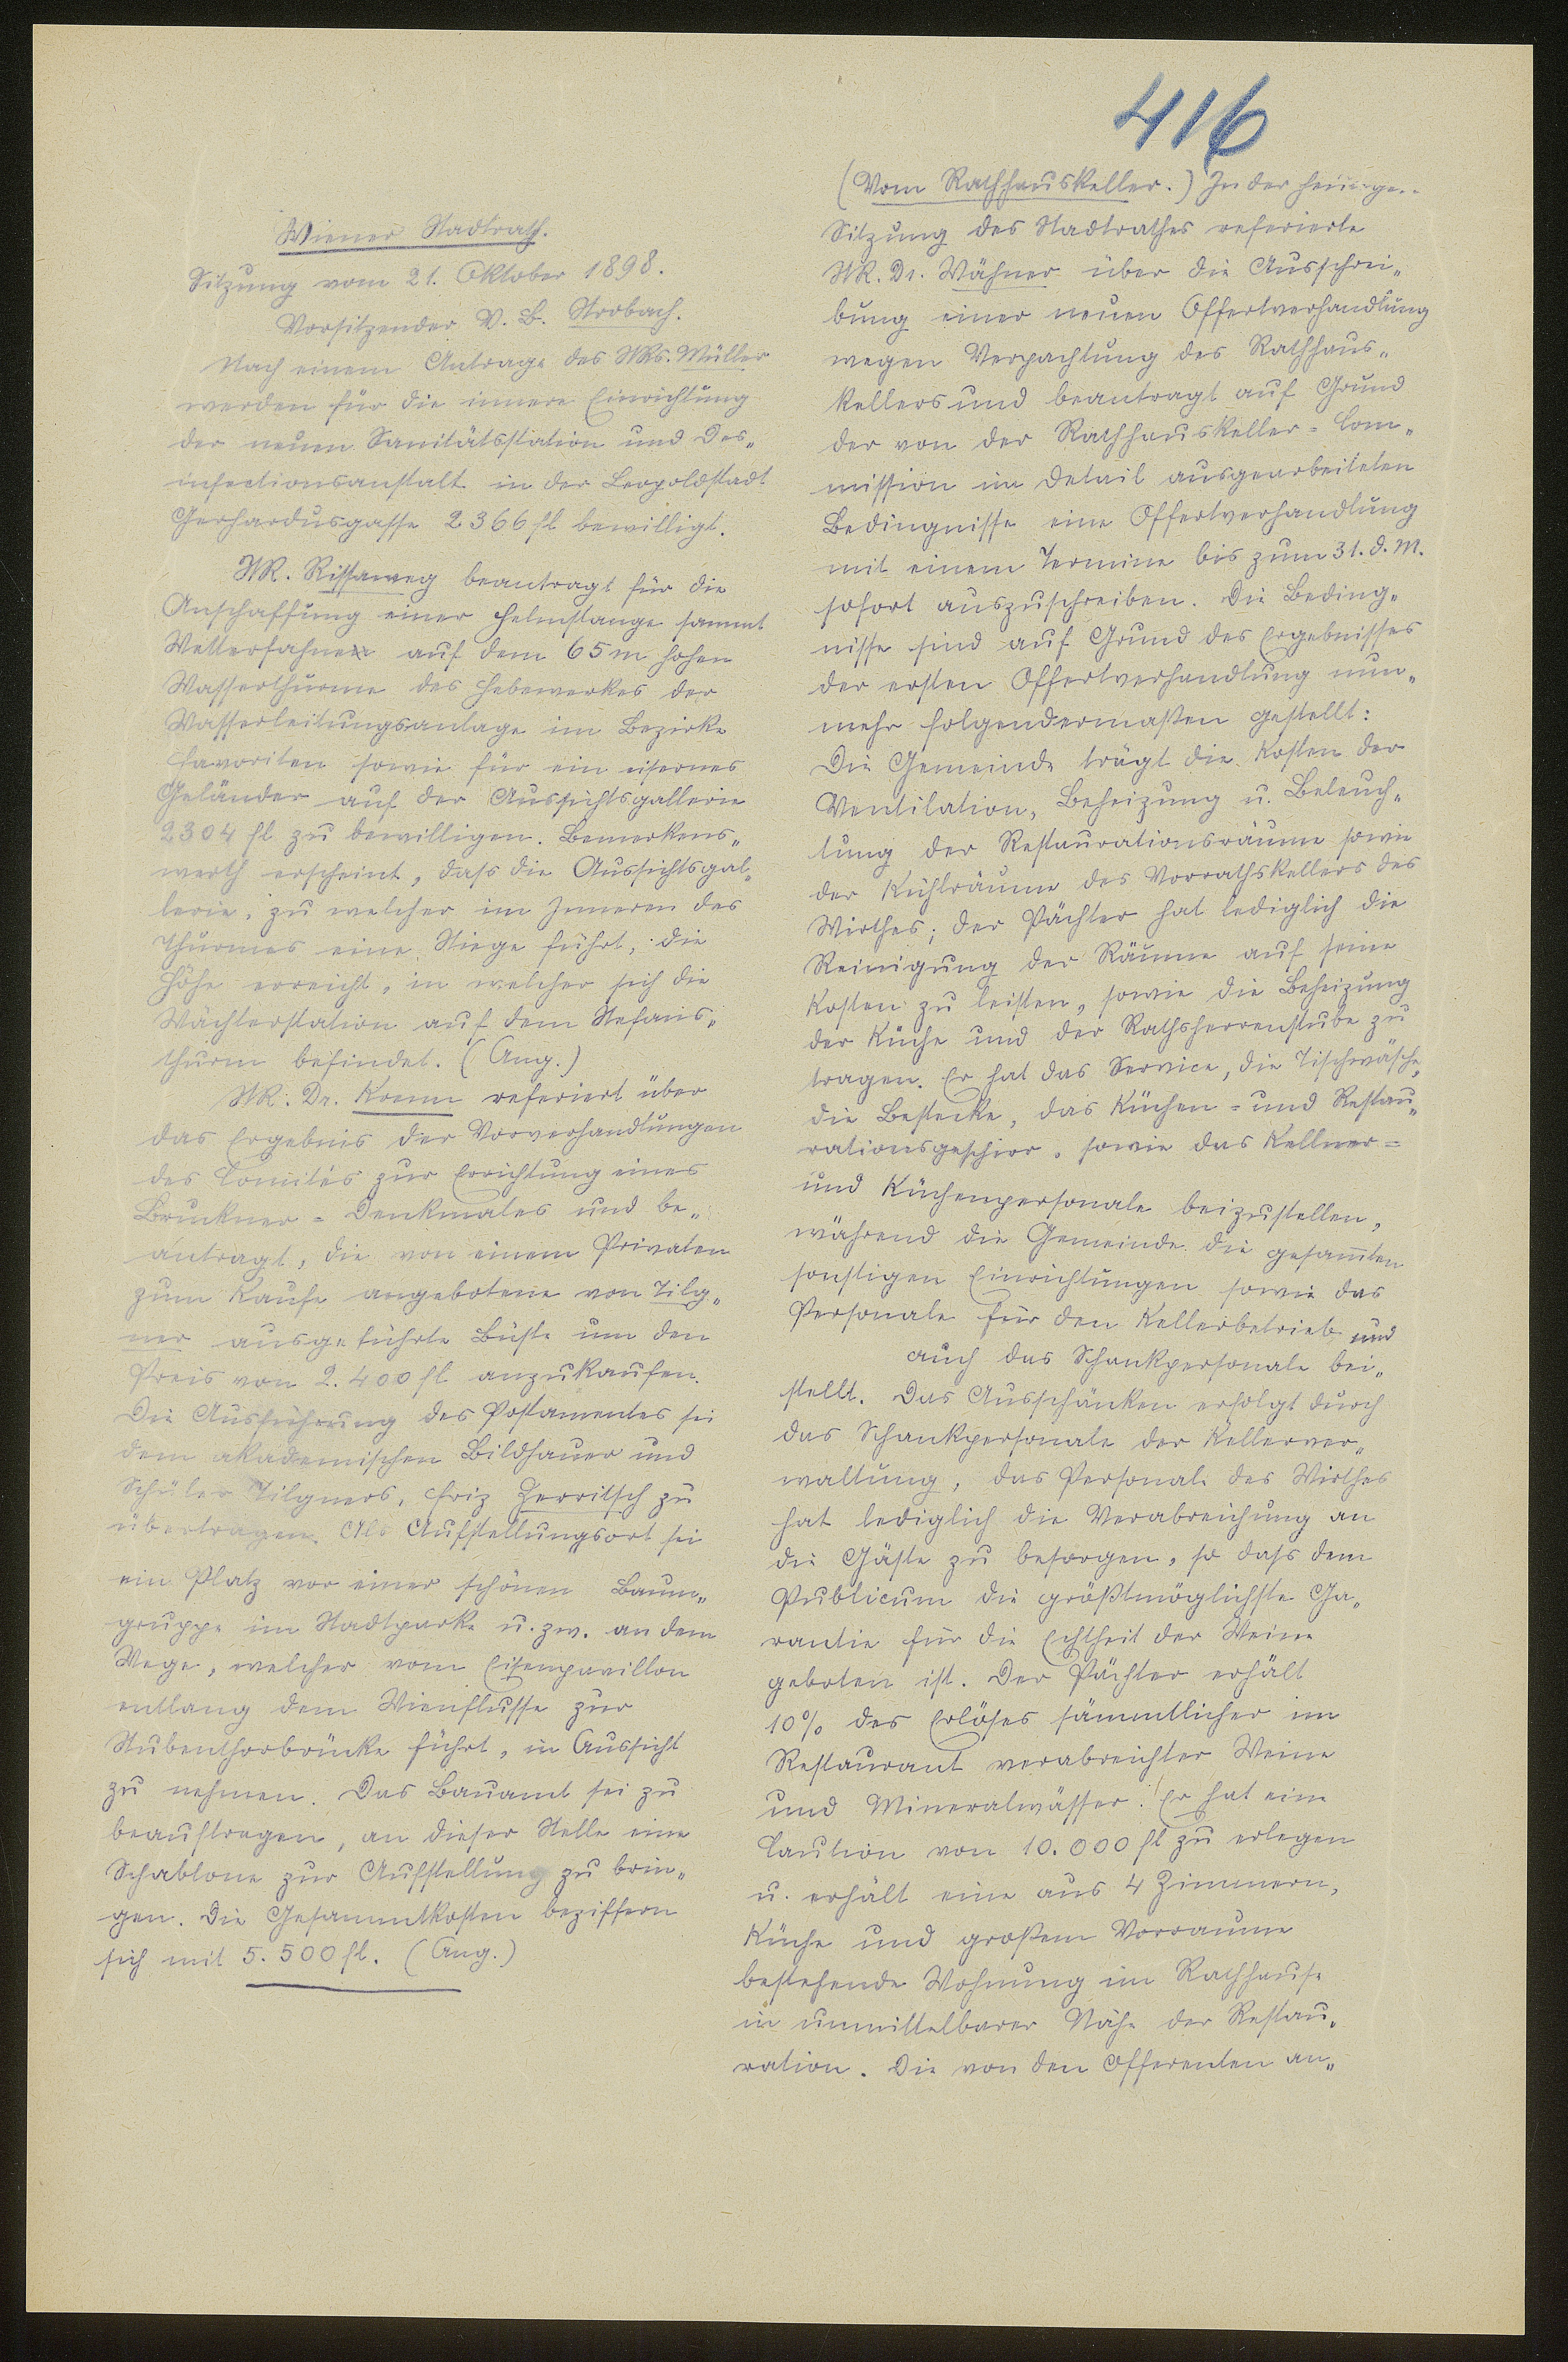 416
Wiener Stadtrath.
Sitzung vom 21. Oktober 1898.
Vorsitzender V. B. Strobach.
Nach einem Antrage des StRs. Müller
werden für die innere Einrichtung
der neuen Sanitätsstation und Des„
infectionsanstalt in der Leopoldstadt
Gerhardusgasse 2366 fl bewilligt.
StR. Rissaweg beantragt für die
Anschaffung einer Helmstange sammt
Wetterfahne auf dem 65 m hohen
Wasserthurme des Hebewerkes der
Wasserleitungsanlage im Bezirke
Favoriten sowie für ein eisernes
Geländer auf der Aussichtsgallerie
2304 fl zu bewilligen. Bemerkens„
werth erscheint, dass die Aussichtsgal„
lerie, zu welcher im Inneren des
Thurmes eine Stiege führt, die
Höhe erreicht, in welcher sich die
Wächterstation auf dem Stefans„
thurm befindet. (Ang.)
StR. Dr. Krenn referiert über
das Ergebnis der Vorverhandlungen
des Comités zur Errichtung eines
Bruckner = Denkmales und be„
antragt, die von einem Privaten
zum Kaufe angebotene von Tilg„
ner ausgeführte Büste um den
Preis von 2.400 fl anzukaufen.
Die Ausführung des Postamentes sei
dem akademischen Bildhauer und
Schüler Tilgners, Friz Zerritsch zu
übertragen. Als Aufstellungsort sei
ein Platz vor einer schönen Baum„
gruppe im Stadtparke u. zw. an dem
Wege, welcher vom Eisenpavillon
entlang dem Wienflusse zur
Stubenthorbrücke führt, in Aussicht
zu nehmen. Das Bauamt sei zu
beauftragen, an dieser Stelle eine
Schablone zur Aufstellung zu brin„
gen. Die Gesammtkosten beziffern
sich mit 5.500 fl. (Ang.)
(Vom Rathhauskeller.) In der heutigen
Sitzung des Stadtrathes referierte
StR. Dr. Wähner über die Ausschrei„
bung einer neuen Offertverhandlung
wegen Verpachtung des Rathhaus„
kellers und beantragt auf Grund
der von der Rathhauskeller = Com„
mission im Detail ausgearbeiteten
Bedingnisse eine Offertverhandlung
mit einem Termine bis zum 31. d. M.
sofort auszuschreiben. Die Beding„
nisse sind auf Grund des Ergebnisses
der ersten Offertverhandlung nun„
mehr folgendermaßen gestellt:
Die Gemeinde trägt die Kosten der
Ventilation, Beheizung u. Beleuch„
tung der Restaurationsräume sowie
der Kühlräume des Vorrathskellers des
Wirthes; der Pächter hat lediglich die
Reinigung der Räume auf seine
Kosten zu leisten, sowie die Beheizung
der Küche und der Rathsherrenstube zu
tragen. Er hat das Service, die Tischwäsche,
die Bestecke, das Küchen = und Restau„
rationsgeschirr, sowie das Kellner =
und Küchenpersonale beizustellen,
während die Gemeinde die gesam̄ten
sonstigen Einrichtungen sowie das
Personale für den Kellerbetrieb und
auch das Schankpersonale bei„
stellt. Das Ausschänken erfolgt durch
das Schankpersonale der Kellerver„
waltung, das Personale des Wirthes
hat lediglich die Verabreichung an
die Gäste zu besorgen, so dass dem
Publicum die größtmöglichste Ga„
rantie für die Echtheit der Weine
geboten ist. Der Pächter erhält
10% des Erlöses sämmtlicher im
Restaurant verabreichter Weine
und Mineralwässer. Er hat eine
Caution von 10.000 fl zu erlegen
u. erhält eine aus 4 Zimmern,
Küche und großem Vorraume
bestehende Wohnung im Rathhause
in unmittelbarer Nähe der Restau„
ration. Die von den Offerenten an„